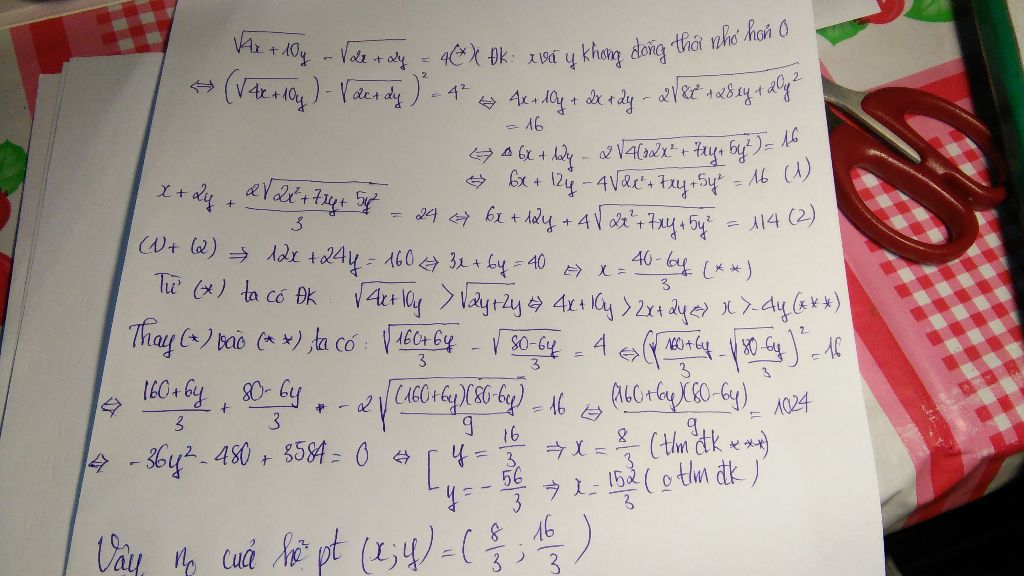 √(4x+10y) - √(2x+2y) = 4(*) ĐK: x và y không đồng thời nhỏ hơn 0
⇔ (√(4x+10y) - √(2x+2y))² = 4² ⇔ 4x+10y + 2x+2y - 2√(8x²+28xy+20y²)
= 16
⇔ 6x+12y - 2√(4(2x²+7xy+5y²)) = 16
⇔ 6x+12y - 4√(2x²+7xy+5y²) = 16 (1)
x+2y + 2√(2x²+7xy+5y²)/3 = 24 ⇔ 6x+12y+4√(2x²+7xy+5y²) = 114 (2)
(1)+(2) ⇒ 12x+24y=160 ⇔ 3x+6y=40 ⇔ x = (40-6y)/3 (**)
Từ (*) ta có ĐK √(4x+10y) > √(2y+2y) ⇔ 4x+10y > 2x+2y ⇔ x > -4y (***)
Thay (*) vào (**), ta có: √((160+6y)/3) - √((80-6y)/3) = 4 ⇔ (√((160+6y)/3) - √((80-6y)/3))² = 16
⇔ (160+6y)/3 + (80-6y)/3 - 2√((160+6y)(80-6y)/9) = 16 ⇔ (160+6y)(80-6y)/9 = 1024
⇔ -36y² - 480 + 3584 = 0 ⇔ [ y = 16/3 ⇒ x = 8/3 (t/m đk ***)
y = -56/3 ⇒ x = 152/3 (o t/m đk)
Vậy no của hệ pt (x;y) = (8/3; 16/3)